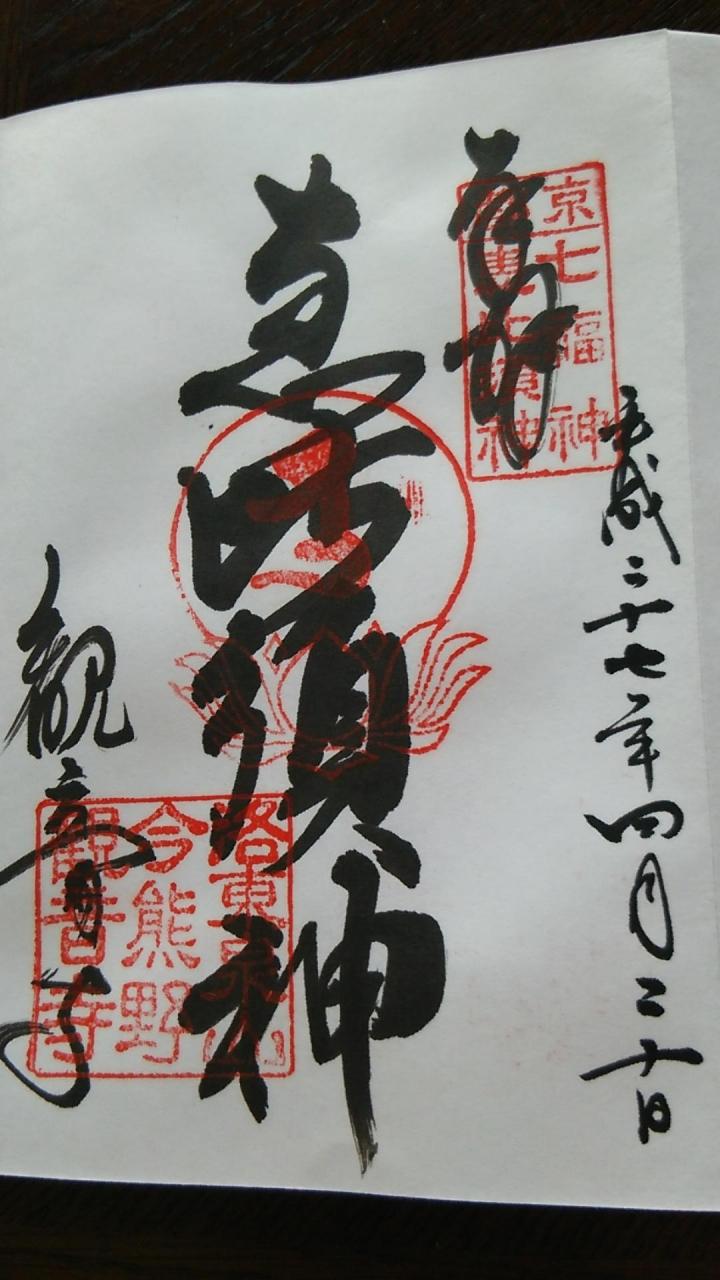 平成二十七年四月二十日
奉拝
京七福神
惠比須神
恵比須神
観音寺
洛東泉山
今熊野
觀音寺